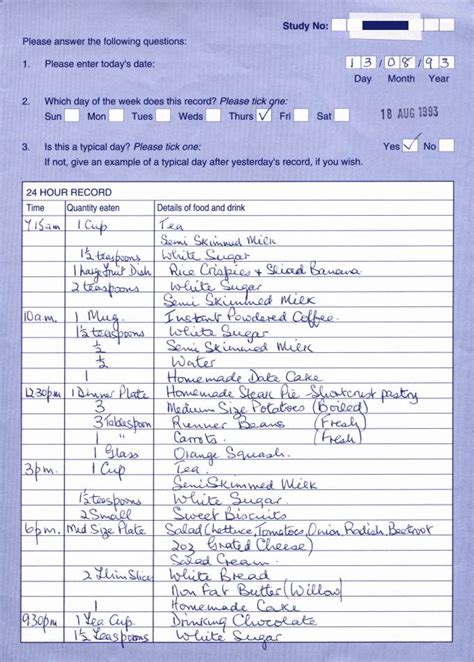 Study No:
Please answer the following questions:
1. Please enter today's date: 13/08/93
Day Month Year
2. Which day of the week does this record? Please tick one:
Sun Mon Tues Weds Thurs ✓ Fri Sat 18 AUG 1993
3. Is this a typical day? Please tick one: Yes ✓ No
If not, give an example of a typical day after yesterday's record, if you wish.
24 HOUR RECORD
Time Quantity eaten Details of food and drink
7.15am 1 Cup Tea
Semi Skimmed Milk
1½ teaspoons White Sugar
1 large Fruit Dish Rice Crispies & Sliced Banana
2 teaspoons White Sugar
Semi Skimmed Milk
10am. 1 Mug. Instant Powdered Coffee.
1½ teaspoons White Sugar
½ Semi Skimmed Milk
½ Water
1 Homemade Date Cake
12.30pm 1 Dinner Plate Homemade Steak Pie - Shortcrust pastry
3 Medium Size Potatoes (Boiled)
3 Tablespoon Runner Beans (Fresh)
1 " Carrots. (Fresh)
1 Glass Orange Squash.
3pm. 1 Cup Tea.
Semi Skimmed Milk
1½ teaspoons White Sugar
2 Small Sweet Biscuits
6pm. Med Size Plate Salad (Lettuce, Tomatoes, Onion, Radish, Beetroot
2oz Grated Cheese)
Salad Cream
2 Thin Slices White Bread
Non Fat Butter (Willow)
1 Homemade Cake
9.30pm 1 Tea Cup Drinking Chocolate
1½ Teaspoons White Sugar